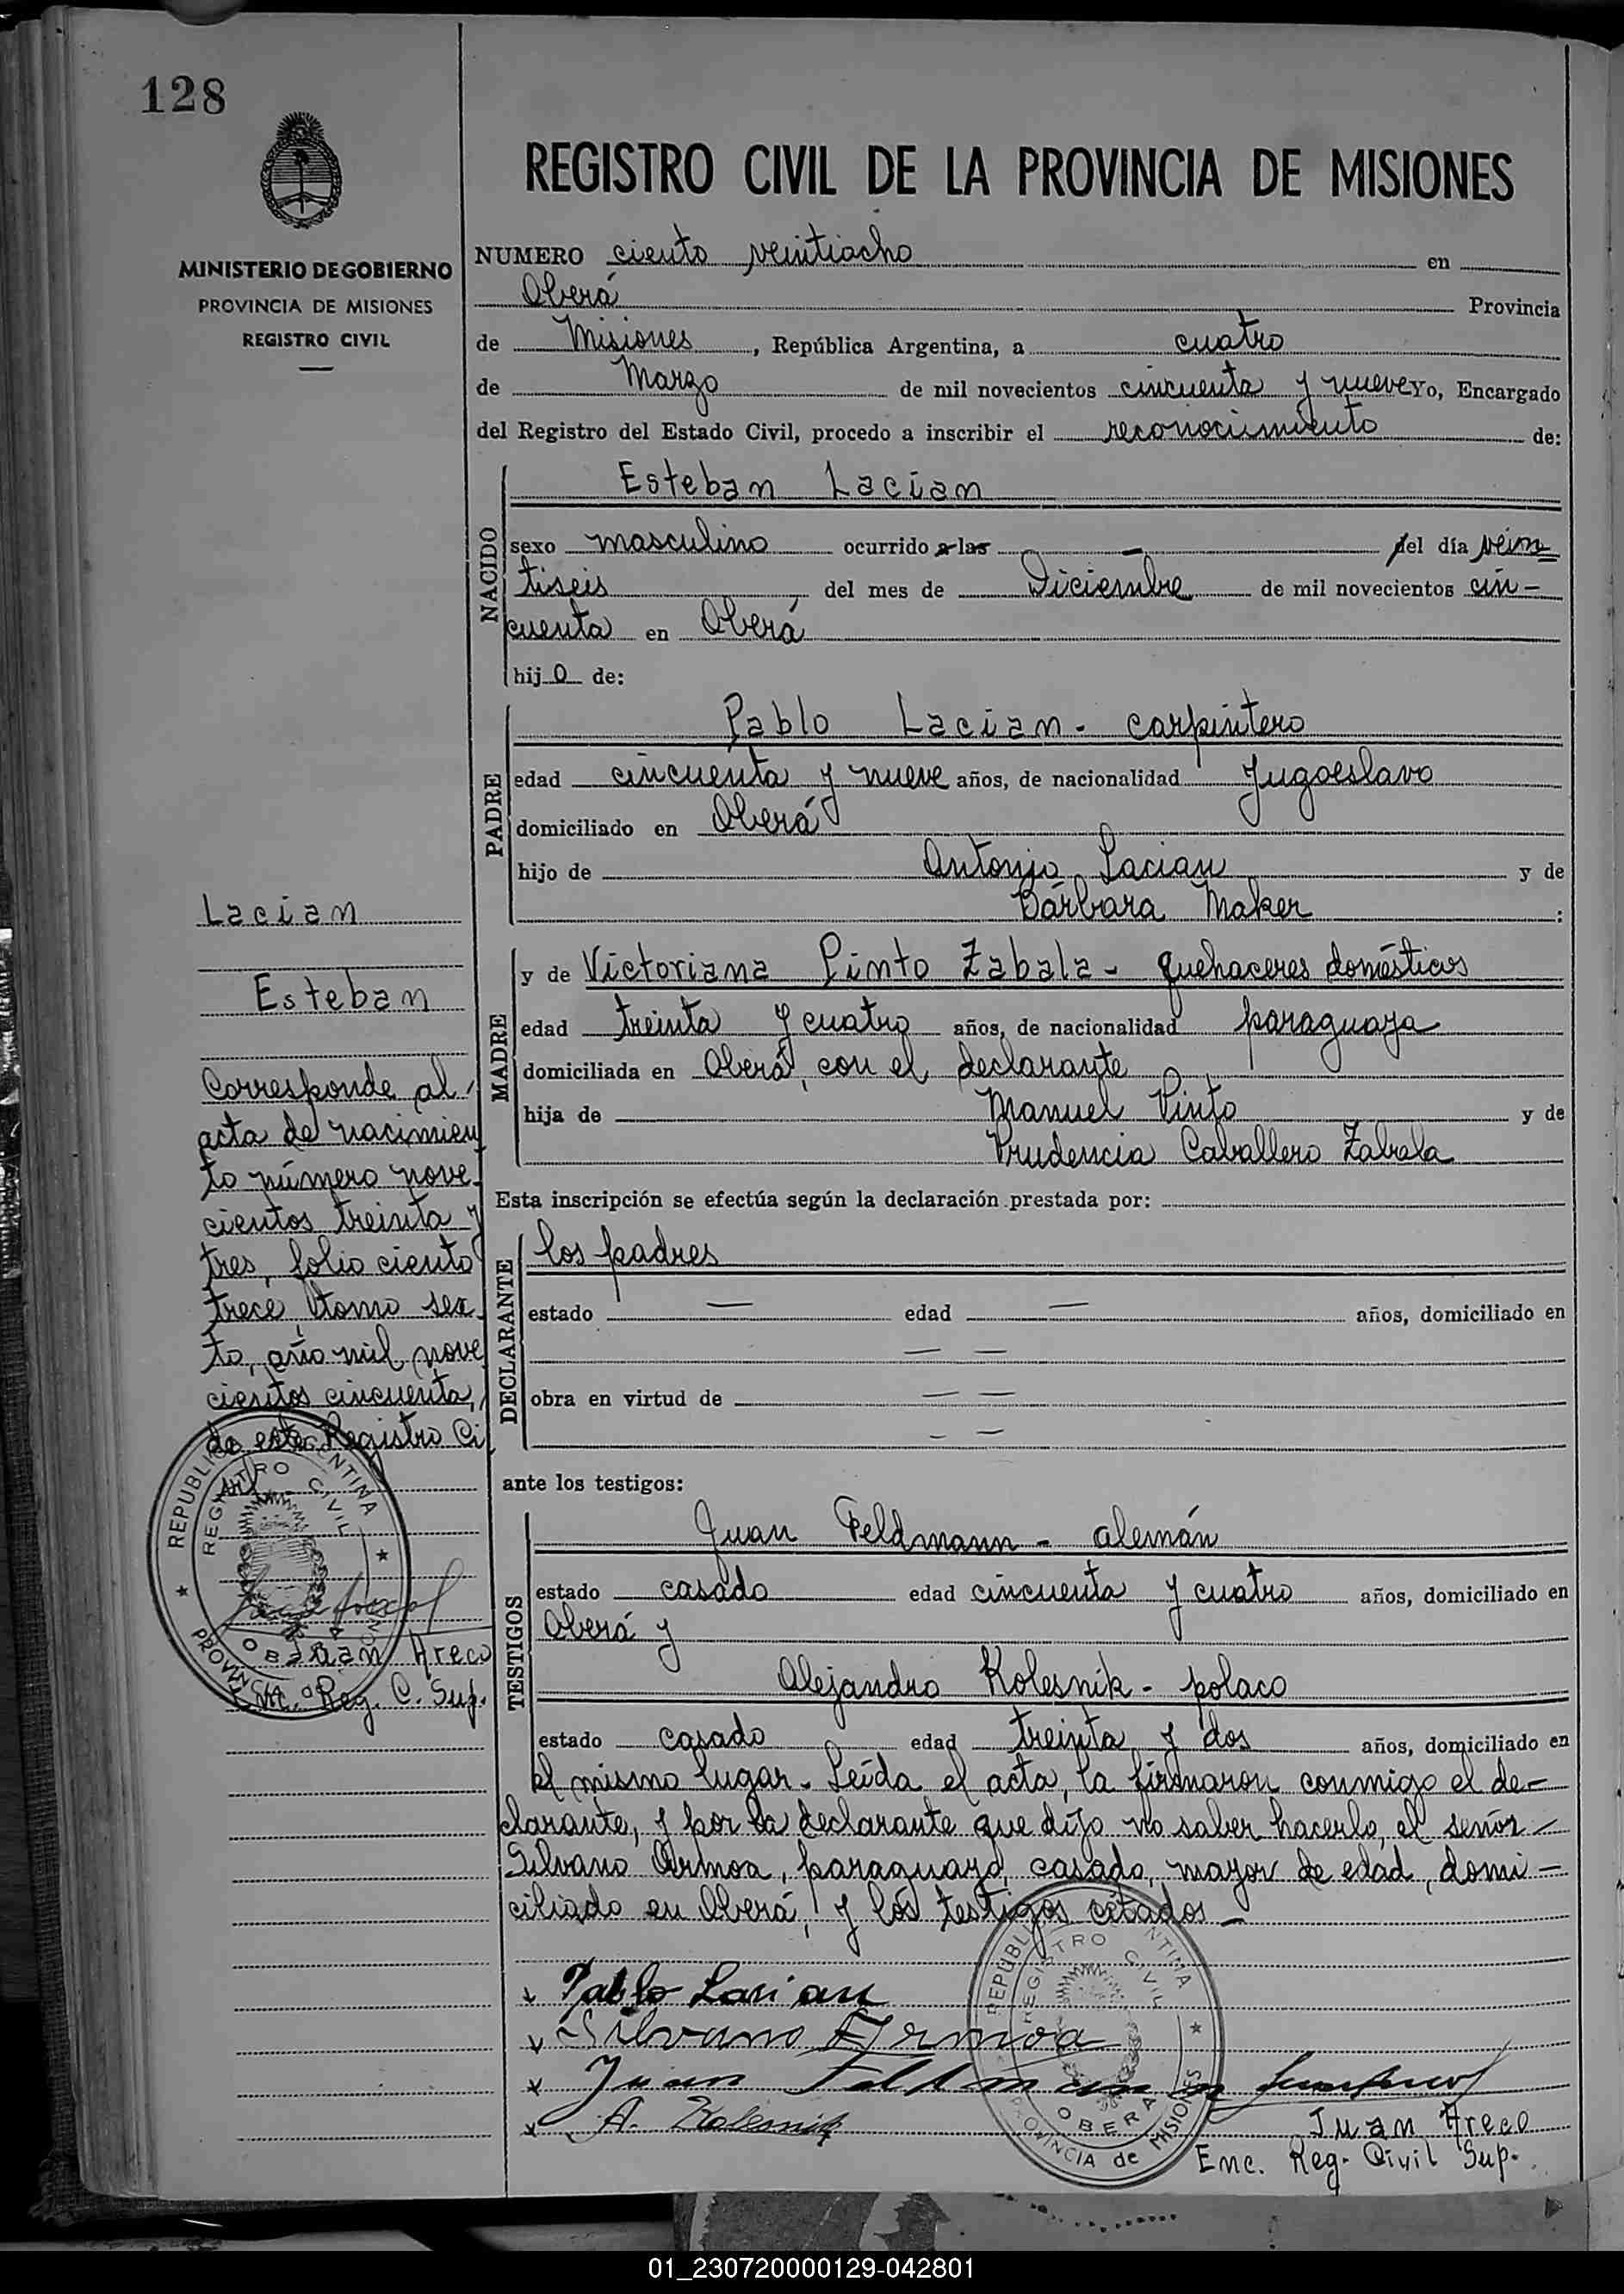 128
REGISTRO CIVIL DE LA PROVINCIA DE MISIONES
MINISTERIO DE GOBIERNO
PROVINCIA DE MISIONES
REGISTRO CIVIL
NUMERO ciento veintiocho en
Oberá Provincia
de Misiones, República Argentina, a cuatro
de Marzo de mil novecientos cincuenta y nueve Yo, Encargado
del Registro del Estado Civil, procedo a inscribir el reconocimiento de:
NACIDO
Esteban Lacian
sexo masculino ocurrido a las — del día vein=
tiseis del mes de Diciembre de mil novecientos cin-
cuenta en Oberá
hijo de:
PADRE
Pablo Lacian - carpintero
edad cincuenta y nueve años, de nacionalidad Jugoeslavo
domiciliado en Oberá
hijo de Antonio Lacian y de
Bárbara Maker :
MADRE
y de Victoriana Pinto Zabala - quehaceres domésticos
edad treinta y cuatro años, de nacionalidad paraguaya
domiciliada en Oberá, con el declarante
hija de Manuel Pinto y de
Prudencia Caballero Zabala
Esta inscripción se efectúa según la declaración prestada por:
DECLARANTE
los padres
estado — edad — años, domiciliado en
— —
obra en virtud de — —
— —
ante los testigos:
TESTIGOS
Juan Feldmann - alemán
estado casado edad cincuenta y cuatro años, domiciliado en
Oberá y
Alejandro Kolesnik - polaco
estado casado edad treinta y dos años, domiciliado en
el mismo lugar. Leída el acta, la firmaron conmigo el de-
clarante, y por la declarante que dijo no saber hacerlo, el señor
Silvano Armoa, paraguayo, casado, mayor de edad, domi-
ciliado en Oberá, y los testigos citados -
Pablo Lacian
Silvano Armoa
Juan Feldmann
A. Kolesnik
Juan Areco
Enc. Reg. Civil Sup.
REPUBLICA ARGENTINA
REGISTRO CIVIL
OBERA
PROVINCIA de MISIONES
Lacian
Esteban
Corresponde al
acta de nacimien
to número nove-
cientos treinta y
tres, folio ciento
trece, tomo sex
to, año mil nove
cientos cincuenta,
de este Registro Ci
vil.
REPUBLICA ARGENTINA
REGISTRO CIVIL
OBERA
PROVINCIA
Juan Areco
Enc. Reg. C. Sup.
01_230720000129-042801